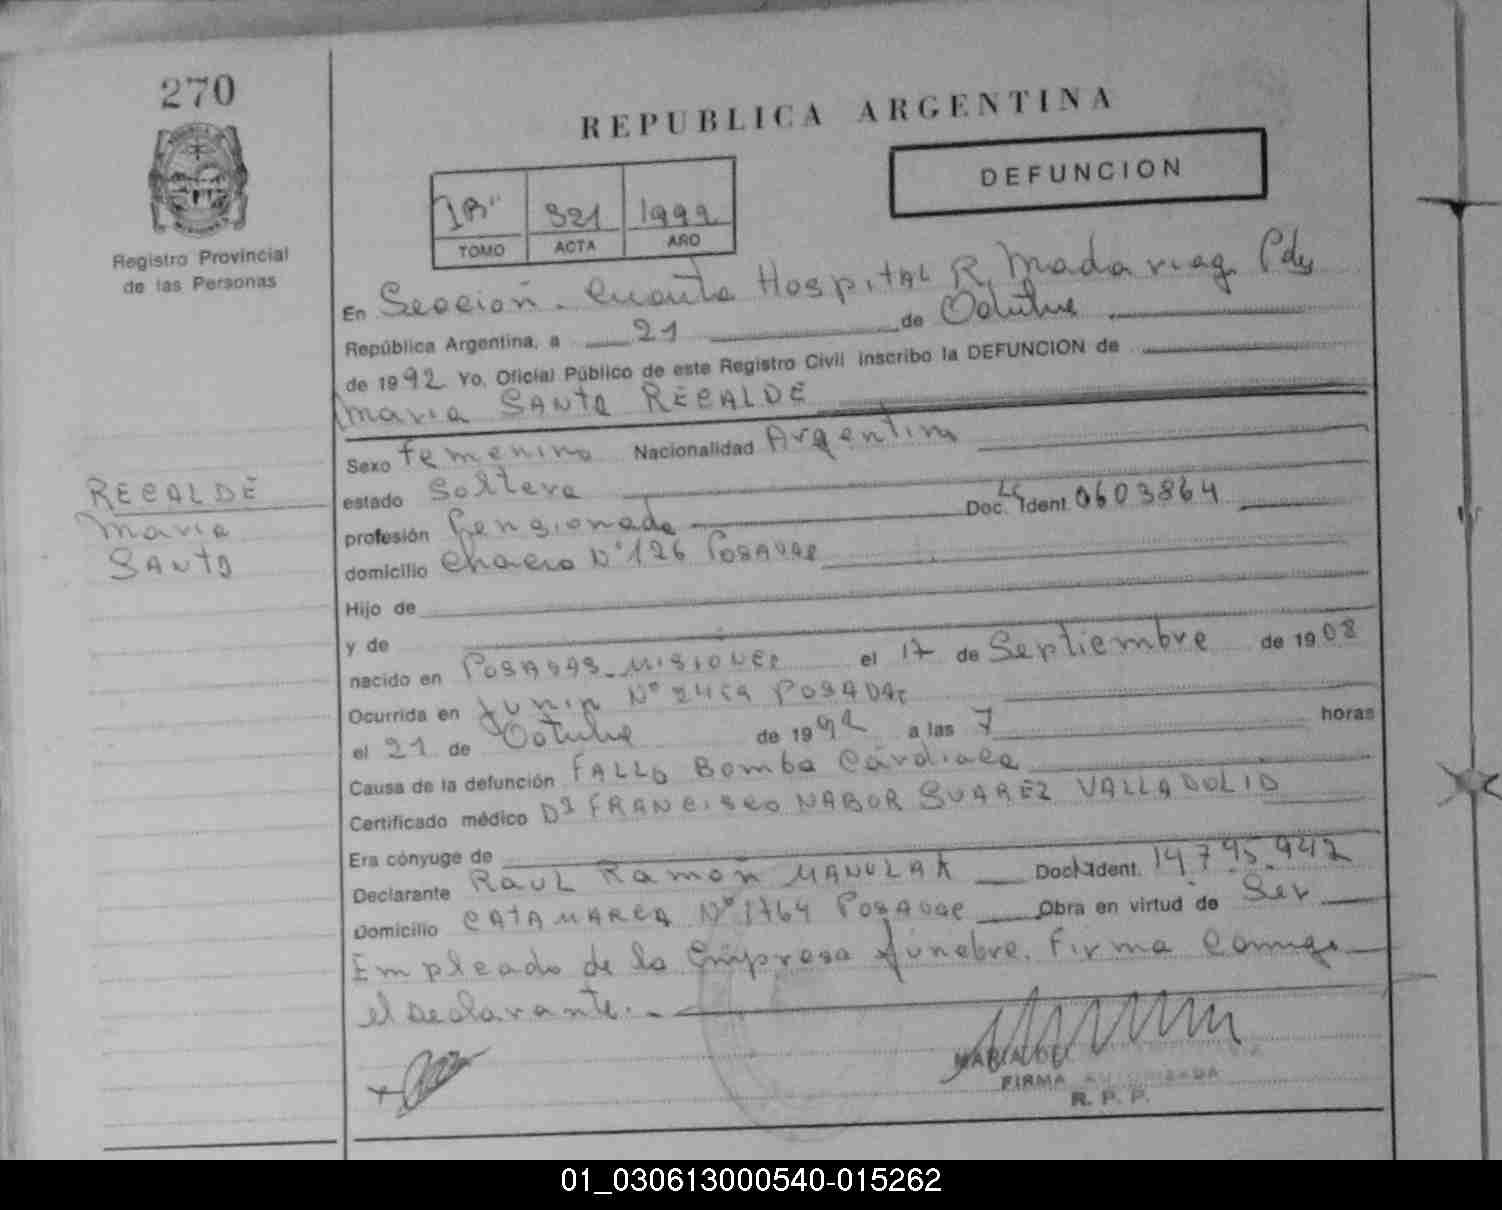 270
Registro Provincial
de las Personas
REPUBLICA ARGENTINA
DEFUNCION
1B" 321 1992
TOMO ACTA AÑO
En Sección Cuarta Hospital R. Madariaga Pdas
República Argentina, a 21 de Octubre
de 1992 Yo, Oficial Público de este Registro Civil inscribo la DEFUNCION de
Maria SANTA RECALDE
Sexo Femenino Nacionalidad Argentina
estado Soltera
profesión Pensionada Doc. LC Ident. 0603864
domicilio Chaco N° 126 Posadas
Hijo de
y de
nacido en POSADAS MISIONES el 17 de Septiembre de 1908
Ocurrida en Junin N° POSADAS
el 21 de Octubre de 1992 a las 7 horas
Causa de la defunción FALLO Bomba Cardiaca
Certificado médico Dr FRANCISCO NABOR SUAREZ VALLADOLID
Era cónyuge de
Declarante RAUL Ramón MANULAK Doc. Ident. 14.795.942
Domicilio CATAMARCA N° 1764 POSADAS Obra en virtud de Ser
Empleado de la Empresa fúnebre. Firma Conmigo
el declarante.
FIRMA AUTORIZADA
R. P. P.
RECALDE
Maria
SANTA
01_030613000540-015262